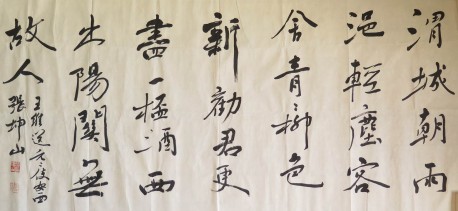 渭城朝雨
浥輕塵客
舍青柳色
新勸君更
盡一杯酒西
出陽關無
故人
王維送元二使安西
張坤山